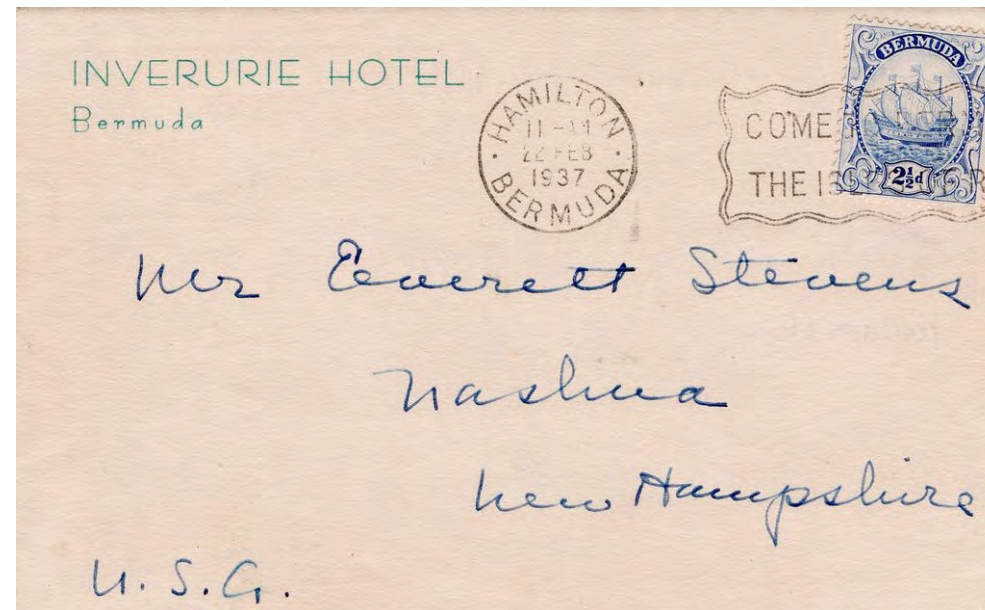 INVERURIE HOTEL
Bermuda
HAMILTON
11 - AM
22 FEB
1937
BERMUDA
COME
THE
BERMUDA
2½d
Mr Everett Stevens
Nashua
New Hampshire
U.S.A.